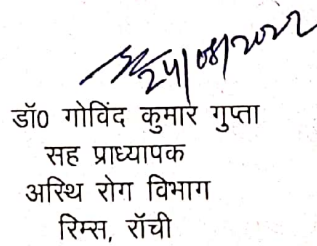 24/08/2022
डॉ0 गोविंद कुमार गुप्ता
सह प्राध्यापक
अस्थि रोग विभाग
रिम्स, राँची